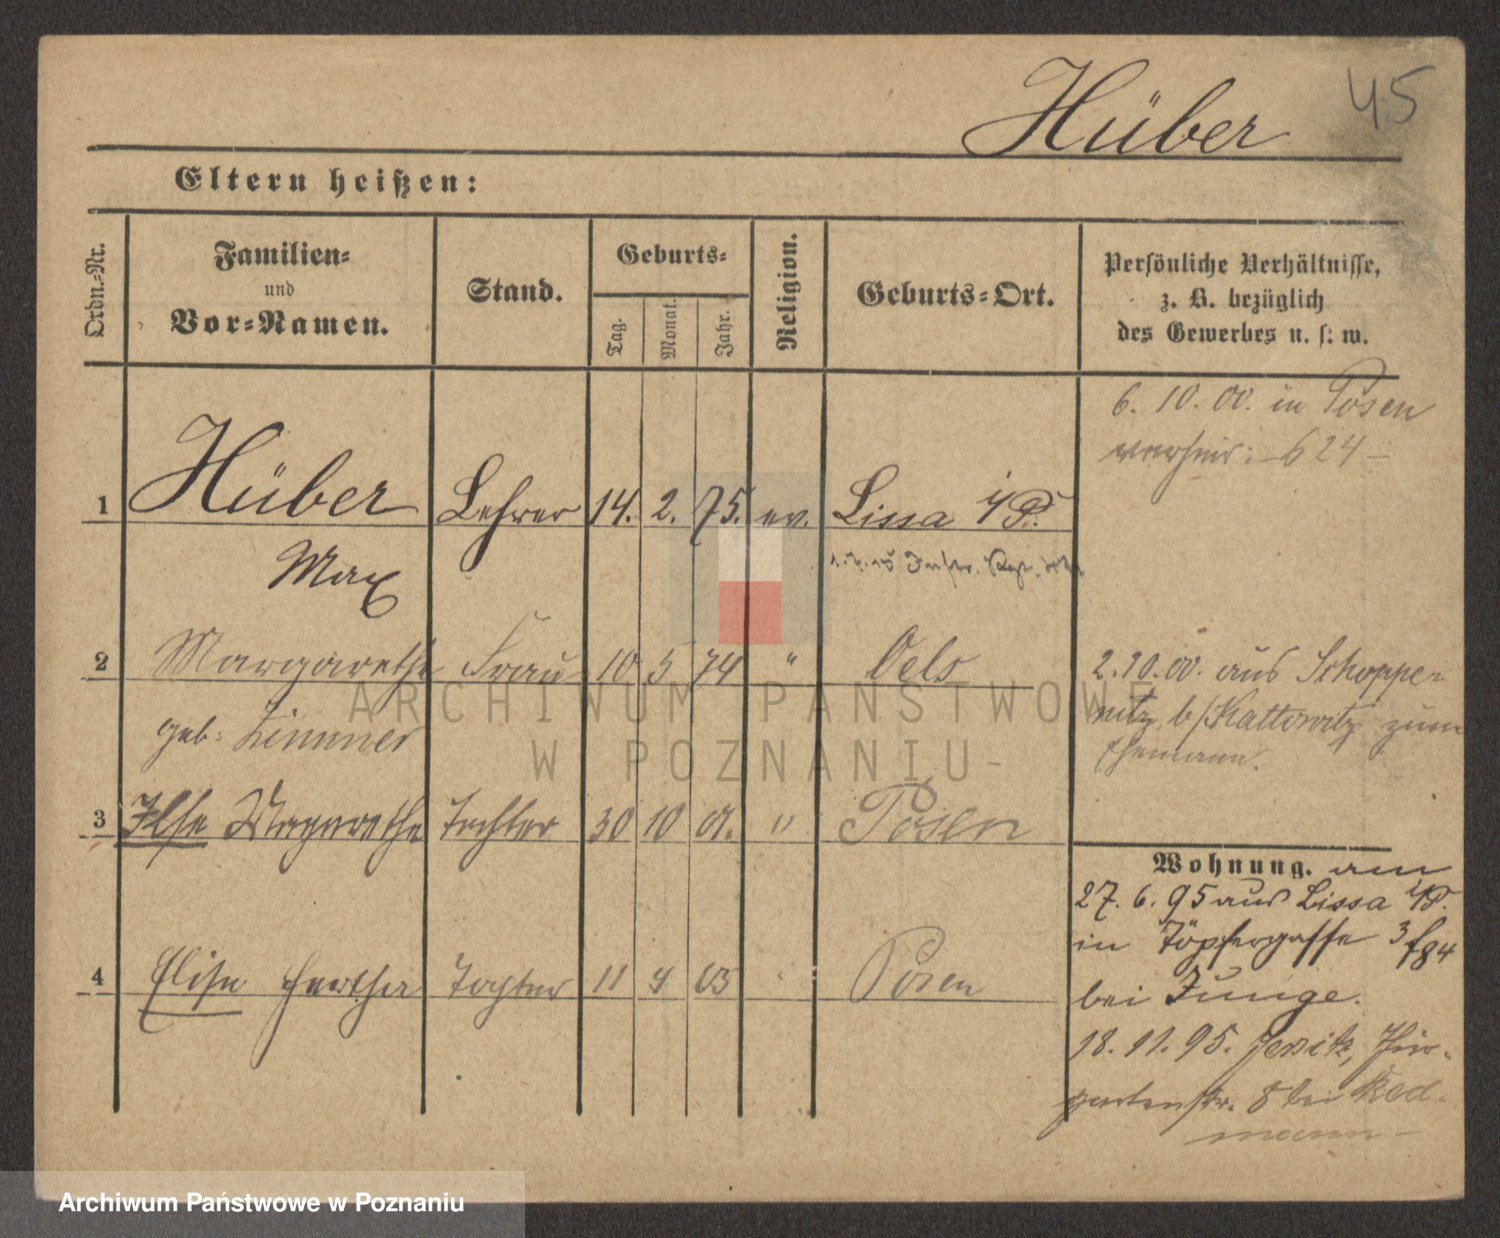 Hüber 45
Eltern heißen:
Ordn.-Nr.
Familien-
und
Vor-Namen.
Stand.
Geburts-
Tag.
Monat.
Jahr.
Religion.
Geburts-Ort.
Persönliche Verhältnisse,
z. B. bezüglich
des Gewerbes u. s. w.
6. 10. 00. in Posen
verheir. 624
1 Hüber Lehrer 14. 2. 75. ev. Lissa i/P.
Max
2 Margarethe Frau 10 5 74 " Oels
geb: Zimmer
2. 10. 00. aus Schoppe-
nitz b/Kattowitz zum
Ehemann.
3 Ilse Margarethe Tochter 30 10 01. " Posen
4 Elise Hertha Tochter 11 4 03 Posen
Wohnung. am
27. 6. 95 aus Lissa i/P.
in Töpfergasse 3
bei Junge.
18. 11. 95. Jersitz, Thier-
gartenstr. 8 bei Red-
mann
ARCHIWUM PAŃSTWOWE
W POZNANIU
Archiwum Państwowe w Poznaniu